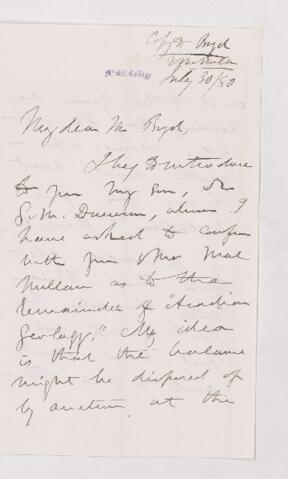 Copy to Boyd
McMillan
July 30/80
McGill College
My dear Mr Boyd,
I beg to introduce
to you my son, Dr
G. M. Dawson, whom I
have asked to confer
with you & Mr Mac
Millan as to the
remainder of "Acadian
Geology." My idea
is that the balance
might be disposed of
by auction at the